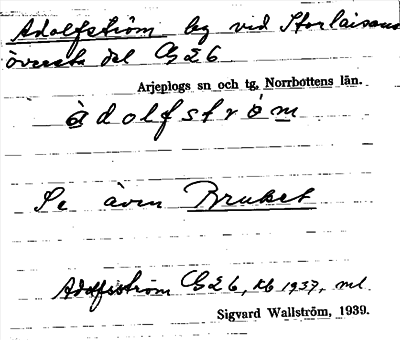 Adolfström by vid Storlaisans
översta del G26
Arjeplogs sn och tg, Norrbottens län.
àdolfstróm
Se även Bruket
Adolfsström G26, kb 1937, ml.
Sigvard Wallström, 1939.